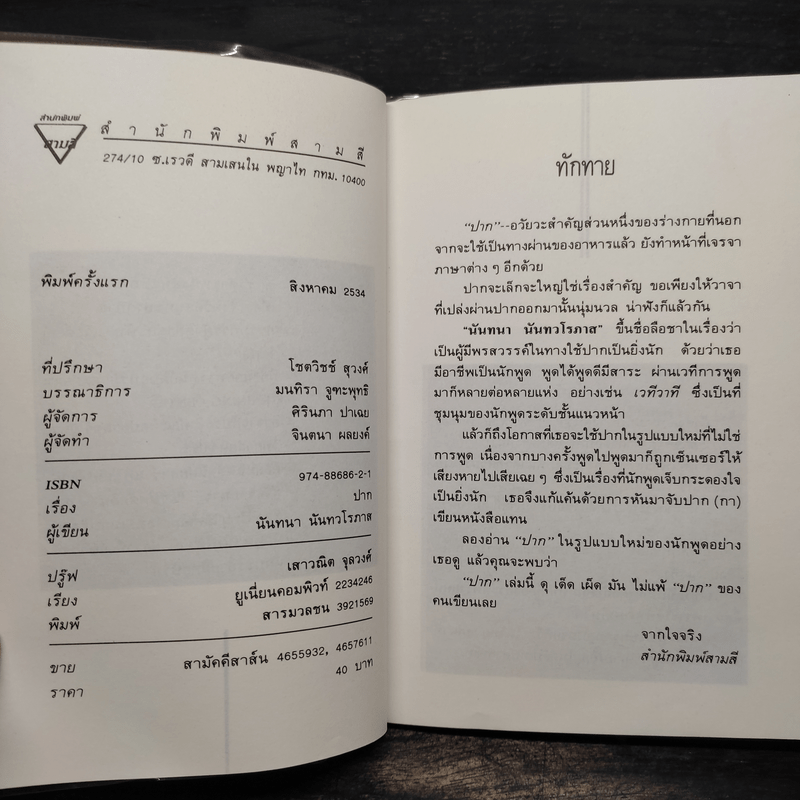 สำนักพิมพ์
สามสี
สำนักพิมพ์สามสี
274/10 ซ.เรวดี สามเสนใน พญาไท กทม. 10400
พิมพ์ครั้งแรก สิงหาคม 2534
ที่ปรึกษา โชตวิชช์ สุวงศ์
บรรณาธิการ มนทิรา จูฑะพุทธิ
ผู้จัดการ ศิรินภา ปาเฉย
ผู้จัดทำ จินตนา ผลยงค์
ISBN 974-88686-2-1
เรื่อง ปาก
ผู้เขียน นันทนา นันทวโรภาส
ปรู๊ฟ เสาวณิต จุลวงศ์
เรียง ยูเนี่ยนคอมพิวท์ 2234246
พิมพ์ สารมวลชน 3921569
ขาย สามัคคีสาส์น 4655932, 4657611
ราคา 40 บาท
ทักทาย
“ปาก”--อวัยวะสำคัญส่วนหนึ่งของร่างกายที่นอก
จากจะใช้เป็นทางผ่านของอาหารแล้ว ยังทำหน้าที่เจรจา
ภาษาต่าง ๆ อีกด้วย
ปากจะเล็กจะใหญ่ใช่เรื่องสำคัญ ขอเพียงให้วาจา
ที่เปล่งผ่านปากออกมานั้นนุ่มนวล น่าฟังก็แล้วกัน
“นันทนา นันทวโรภาส” ขึ้นชื่อลือชาในเรื่องว่า
เป็นผู้มีพรสวรรค์ในทางใช้ปากเป็นยิ่งนัก ด้วยว่าเธอ
มีอาชีพเป็นนักพูด พูดได้พูดดีมีสาระ ผ่านเวทีการพูด
มาก็หลายต่อหลายแห่ง อย่างเช่น เวทีวาที ซึ่งเป็นที่
ชุมนุมของนักพูดระดับชั้นแนวหน้า
แล้วก็ถึงโอกาสที่เธอจะใช้ปากในรูปแบบใหม่ที่ไม่ใช่
การพูด เนื่องจากบางครั้งพูดไปพูดมาก็ถูกเซ็นเซอร์ให้
เสียงหายไปเสียเฉย ๆ ซึ่งเป็นเรื่องที่นักพูดเจ็บกระดองใจ
เป็นยิ่งนัก เธอจึงแก้แค้นด้วยการหันมาจับปาก (กา)
เขียนหนังสือแทน
ลองอ่าน “ปาก” ในรูปแบบใหม่ของนักพูดอย่าง
เธอดู แล้วคุณจะพบว่า
“ปาก” เล่มนี้ ดุ เด็ด เผ็ด มัน ไม่แพ้ “ปาก” ของ
คนเขียนเลย
จากใจจริง
สำนักพิมพ์สามสี